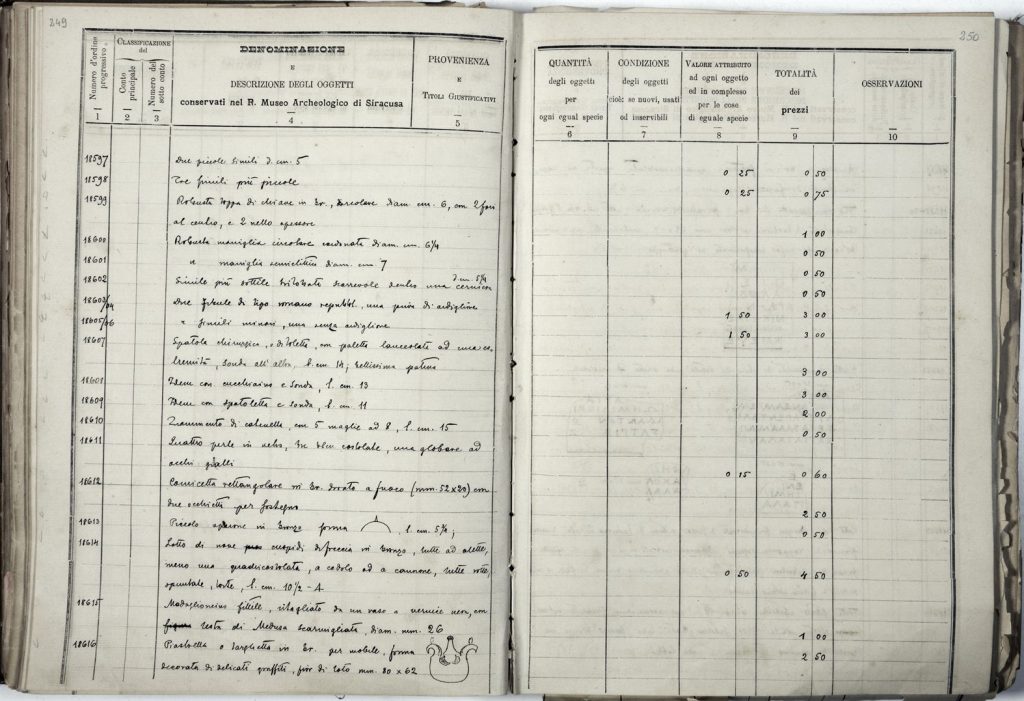 249
Numero d'ordine progressivo
1
CLASSIFICAZIONE
del
Conto principale
2
Numero del sotto conto
3
DENOMINAZIONE
E
DESCRIZIONE DEGLI OGGETTI
conservati nel R. Museo Archeologico di Siracusa
4
PROVENIENZA
E
TITOLI GIUSTIFICATIVI
5
18597 Due piccole simili d. cm. 5
18598 Tre simili più piccole
18599 Robusta toppa di chiave in br., circolare diam. cm. 6, con 2 fori
al centro, e 2 nello spessore
18600 Robusta maniglia circolare cordonata diam. cm. 6¼
18601 " maniglia diam. cm 7
18602 Simile più sottile scorrevole dentro una cerniera d. cm. 5¼
18603/04 Due fibule di tipo romano repubbl. una priva di ardiglione
18605/06 " simili minori, una senza ardiglione
18607 Spatola chirurgica, con paletta lanceolata ad una es-
tremità, sonda all'altra, l. cm. 14; bellissima patina
18608 Idem con cucchiaino e sonda, l. cm. 13
18609 Idem con spatoletta e sonda, l. cm. 11
18610 di catenella, con 5 maglie ad 8, l. cm. 15
18611 Quattro perle in vetro, tre costolate, una globare ad
occhi gialli
18612 Cornicetta rettangolare in br. dorato a fuoco (mm. 52 x 20) con
due occhietti per sostegno
18613 Piccolo in bronzo forma , l. cm. 5¾;
18614 Lotto di nove cuspidi di freccia in bronzo, tutte ad alette,
meno una quadricostolata, a codolo ed a cannone, tutte rotte,
spuntate, torte, l. cm. 10½ - 4
18615 Medaglioncino fittile, ritagliato da un vaso a vernice nera, con
testa di Medusa scarmigliata, diam. mm. 26
18616 Piastrella o targhetta in br. per mobile, forma
decorata di delicati graffiti, fior di loto mm. 80 x 62
250
QUANTITÀ
degli oggetti
per
ogni egual specie
6
CONDIZIONE
degli oggetti
cioè: se nuovi, usati
od inservibili
7
VALORE ATTRIBUITO
ad ogni oggetto
ed in complesso
per le cose
di eguale specie
8
TOTALITÀ
dei
prezzi
9
OSSERVAZIONI
10
0 25 0 50
0 25 0 75
1 00
0 50
0 50
0 50
1 50 3 00
1 50 3 00
3 00
3 00
2 00
0 50
0 15 0 60
2 50
0 50
0 50 4 50
1 00
2 50